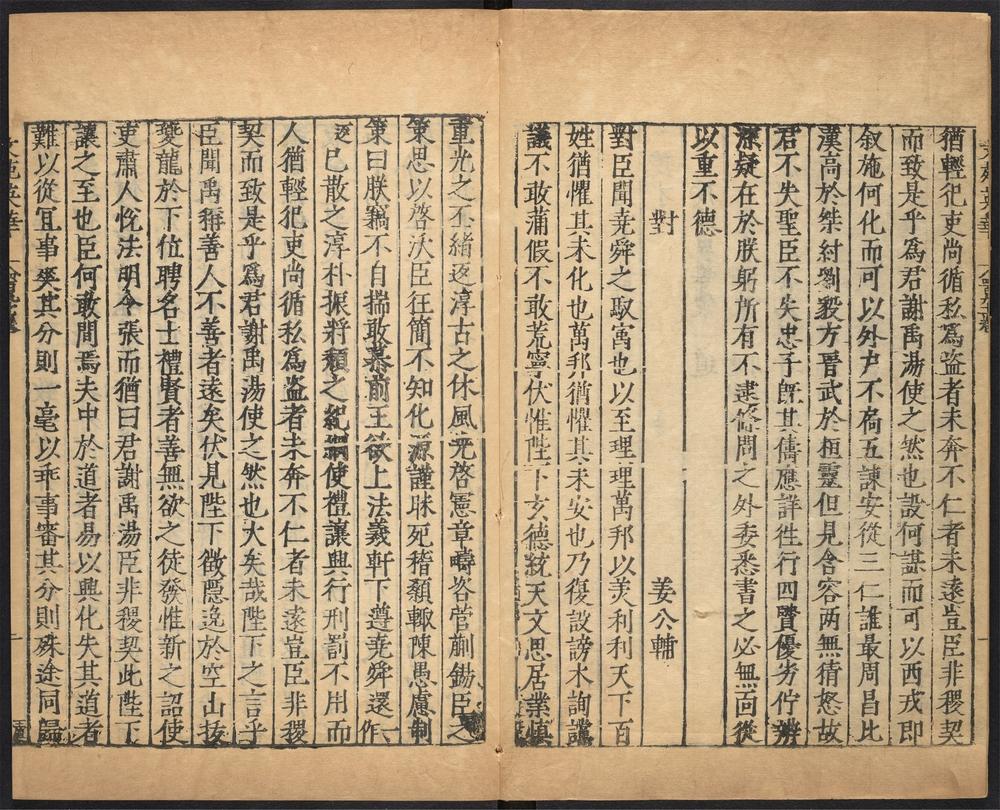 猶輕犯吏尚循私爲盗者未奔不仁者未遠豈臣非稷契
而致是乎爲君謝禹湯使之然也設何謀而可以西戎即
叙施何化而可以外户不扄五諫安從三仁誰最周昌比
漢高於桀紂劉毅方晋武於桓靈但見含容两無猜怒故
君不失聖臣不失忠子旣其儔應詳徃行四賢優劣佇辨
深疑在於朕躬所有不逮條問之外委悉書之必無面從
以重不德
對
姜公輔
對臣聞尭舜之馭寓也以至理理萬邦以羙利利天下百
姓猶懼其未化也萬邦猶懼其未安也乃復設謗木詢讜
議不敢蒲假不敢荒寧伏惟陛下玄德統天文思居業慎
重光之丕緒返淳古之休風光啓憲章疇咨菅蒯鋤臣之
策思以啓沃臣狂簡不知化源謹昧死稽顙輙陳愚慮制
策曰朕竊不自揣敢慕前王欲上法羲軒下遵尭舜還作
返已散之淳朴振將頽之紀綱使禮讓興行刑罰不用而
人猶輕犯吏尚循私爲盗者未奔不仁者未遠豈臣非稷
契而致是乎爲君謝禹湯使之然也大矣哉陛下之言乎
臣聞禹稱善人不善者遠矣伏見陛下徵隠逸於空山㧞
夔龍於下位聘名士禮賢者善無欲之徒發惟新之詔使
吏肅人恱法明令張而猶曰君謝禹湯臣非稷契此陛下
讓之至也臣何敢間焉夫中於道者易以興化失其道者
難以從冝事爽其分則一毫以乖事審其分則殊途同歸